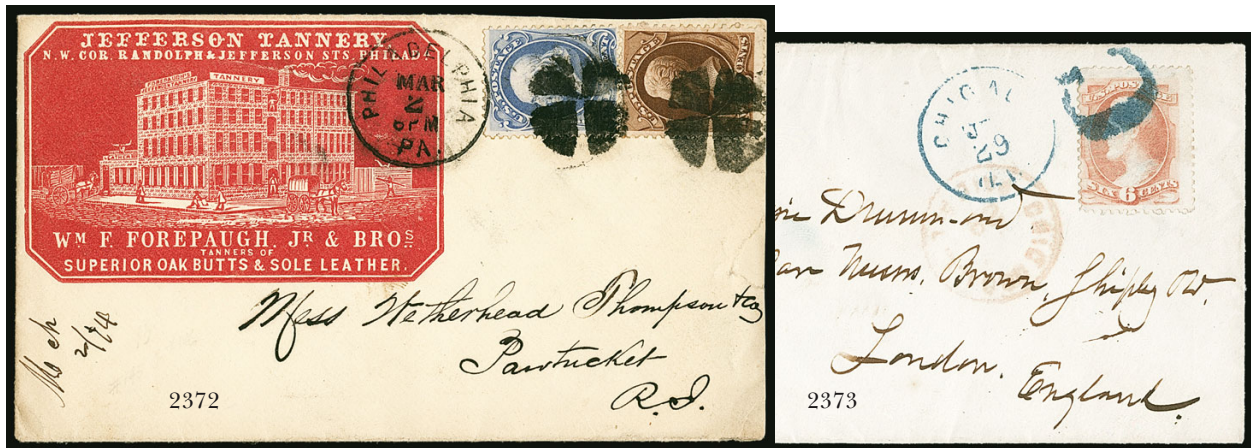 JEFFERSON TANNERY
N.W. COR. RANDOLPH & JEFFERSON STS. PHILADA
TANNERY
WM F. FOREPAUGH, JR & BROS
TANNERS OF
SUPERIOR OAK BUTTS & SOLE LEATHER.
PHILADELPHIA
MAR
2
6PM
PA.
U.S. POSTAGE
CENTS
Mess Wetherhead Thompson & Co
Pawtucket
R.I.
2/74
2372
CHICAG
29
ILL
U.S. POSTAGE
SIX 6 CENTS
CHIC
Drummond
Messrs. Brown, Shipley
London.
England.
2373